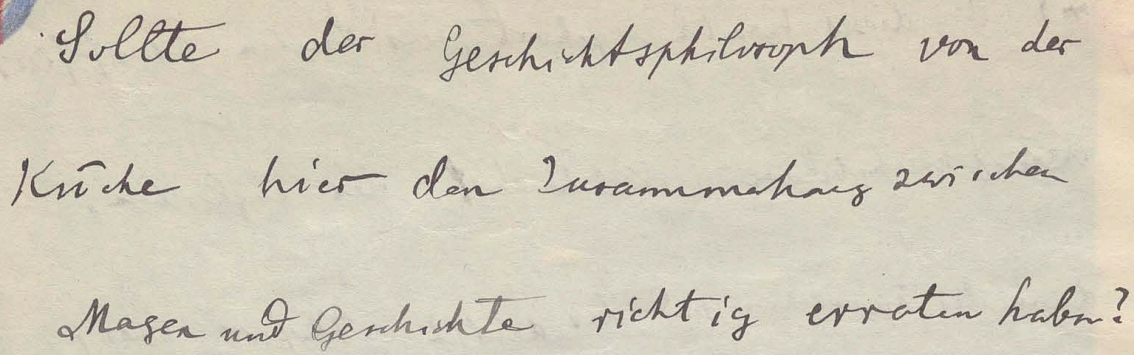 Sollte der Geschichtsphilosoph von der
Küche hier den Zusammenhang zwischen
Magen und Geschichte richtig erraten haben?